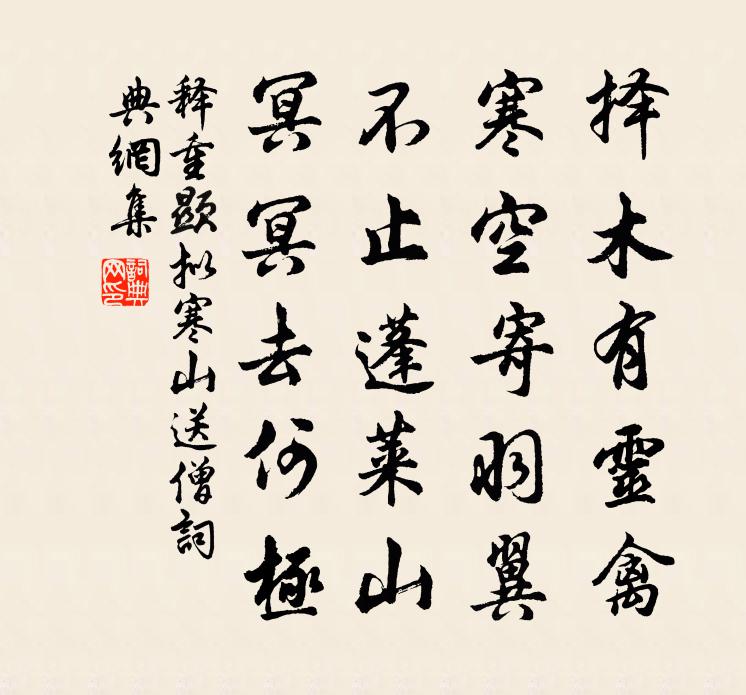 择木有靈禽
寒空寄羽翼
不止蓬萊山
冥冥去何極
释重顯拟寒山送僧詞
典網集
詞典网印